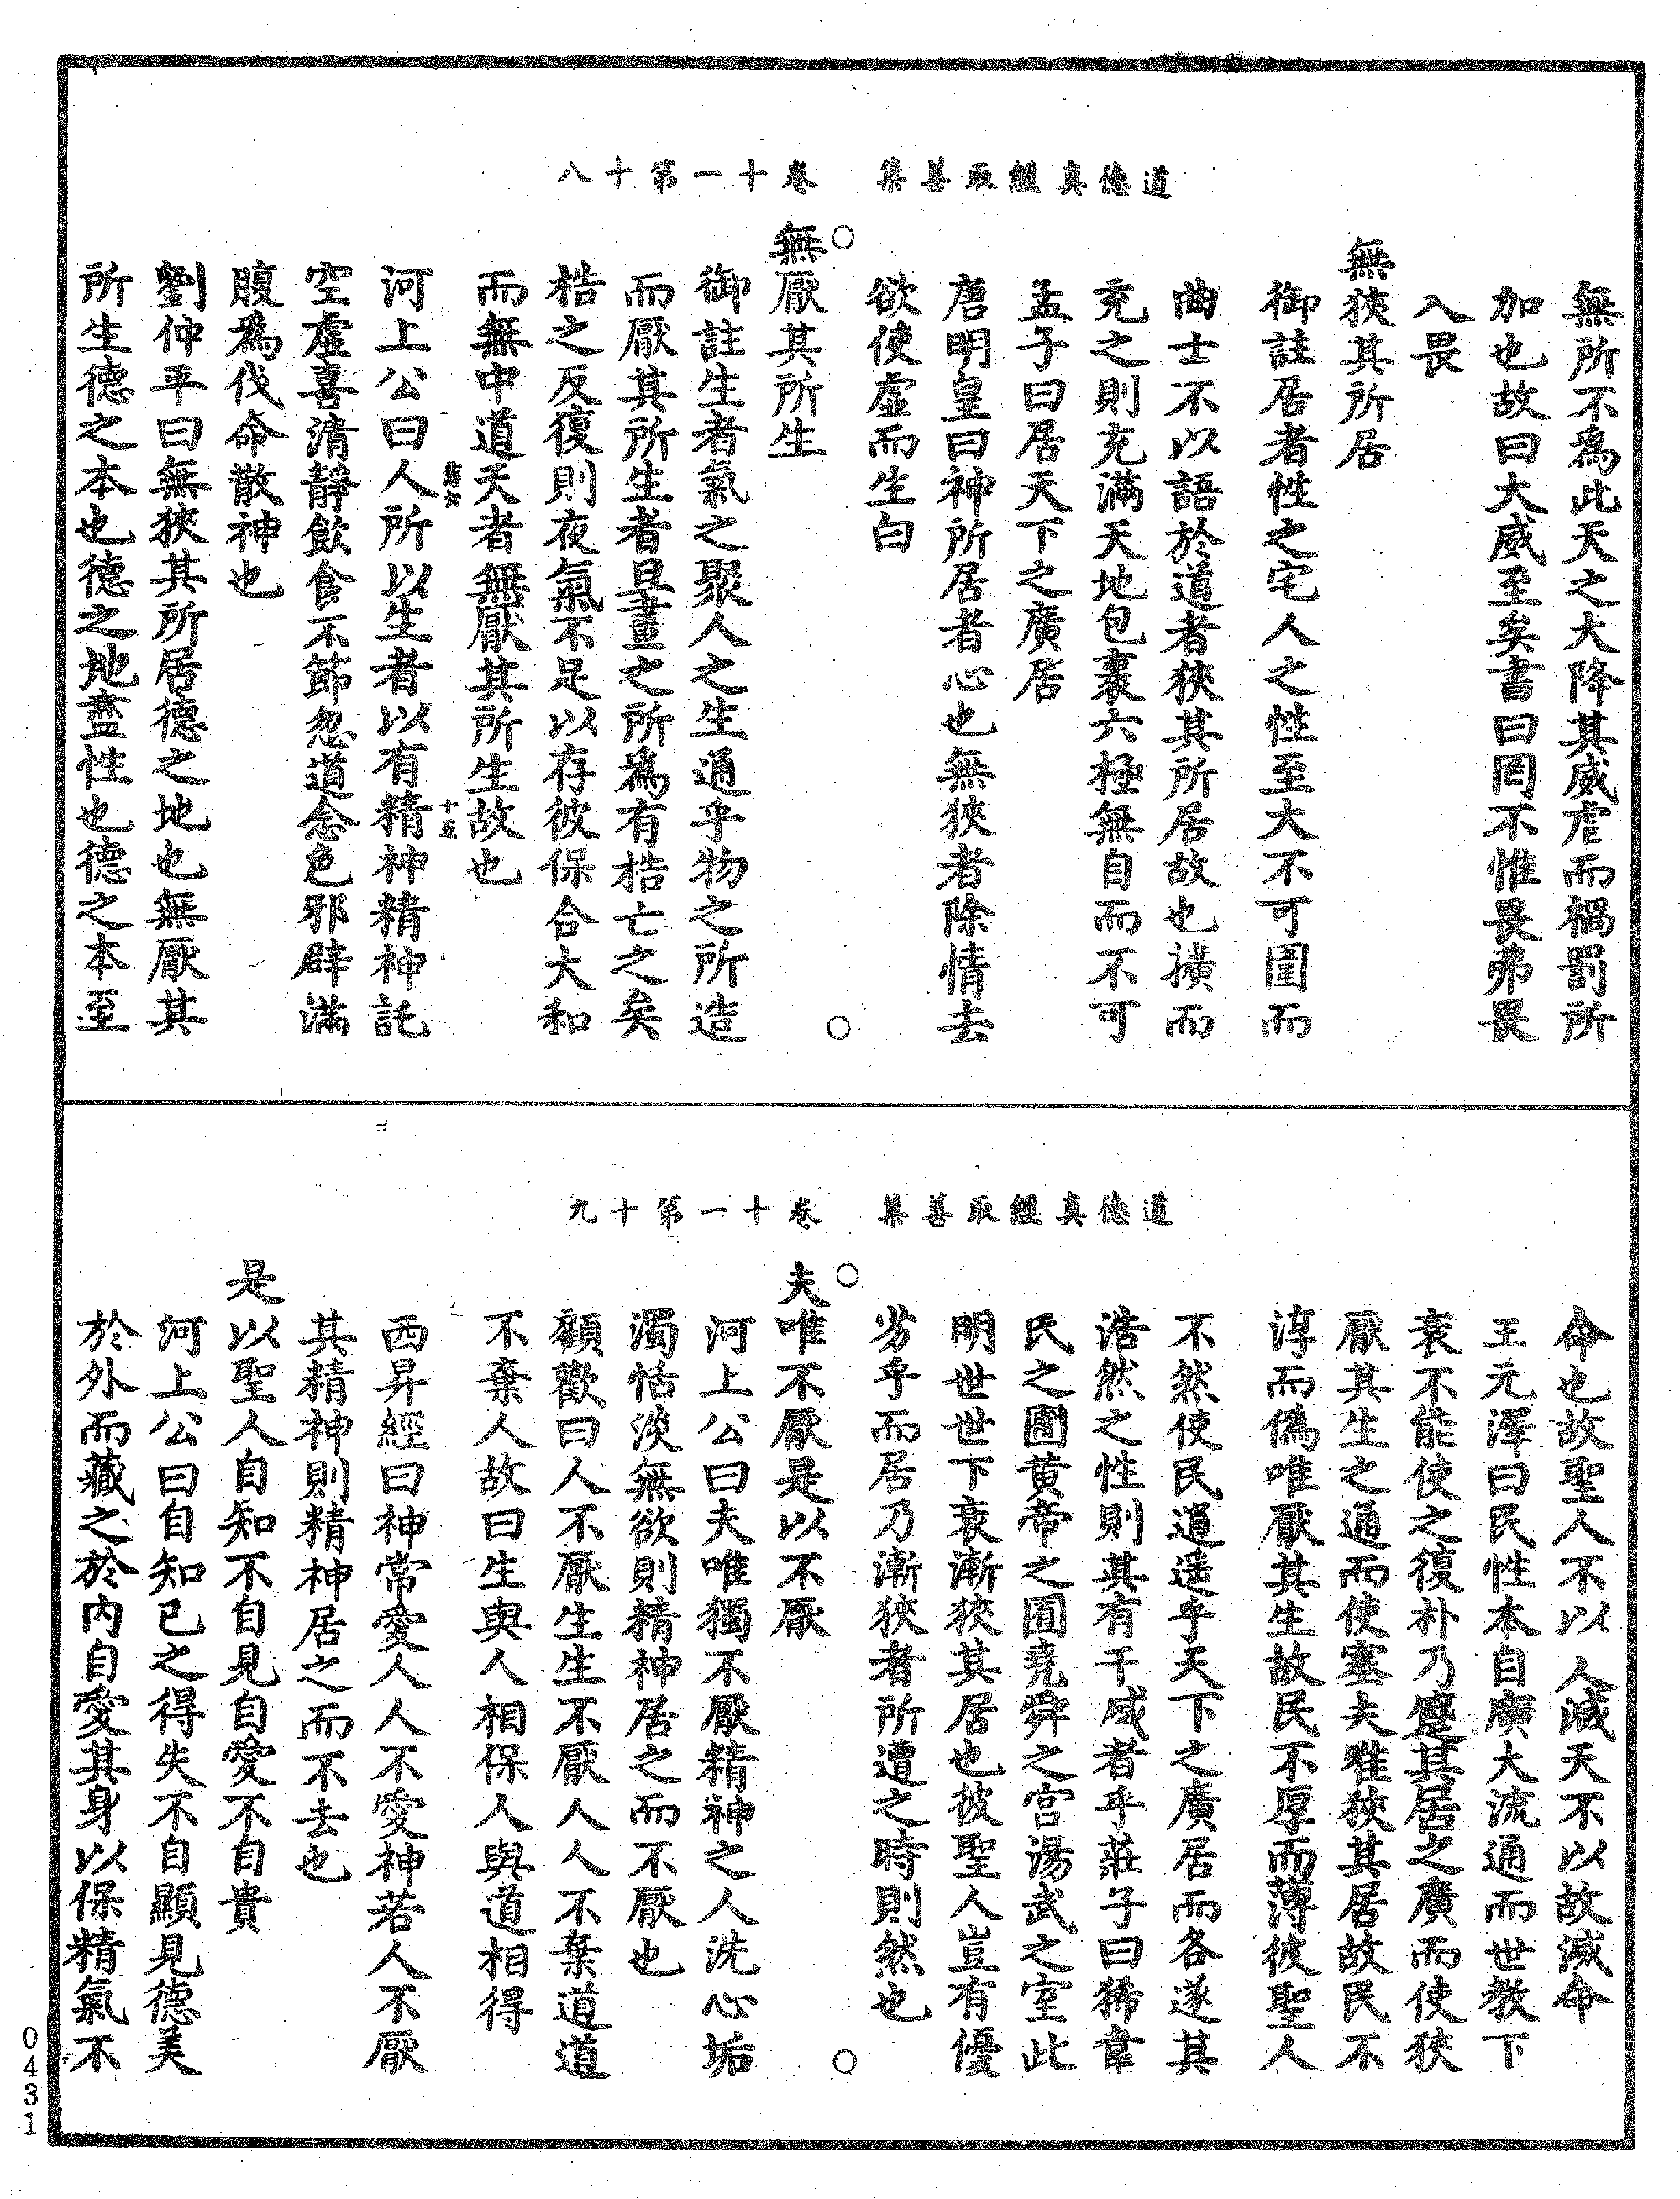 道德真經取善集　卷十一第十八
無所不為此天之大降其威虐而禍罰所
加也故曰大威至矣書曰罔不惟畏弗畏
入畏
無狹其所居
御註居者性之宅人之性至大不可圍而
曲士不以語於道者狹其所居故也擴而
充之則充滿天地包裹六極無自而不可
孟子曰居天下之廣居
唐明皇曰神所居者心也無狹者除情去
欲使虛而生白
無厭其所生
御註生者氣之聚人之生通乎物之所造
而厭其所生者旦晝之所為有梏亡之矣
梏之反復則夜氣不足以存彼保合大和
而無中道夭者無厭其所生故也
河上公曰人所以生者以有精神精神託
空虛喜清靜飲食不節忽道念色邪僻滿
腹為伐命散神也
劉仲平曰無狹其所居德之地也無厭其
所生德之本也德之地盡性也德之本至
道德真經取善集　卷十一第十九
命也故聖人不以人滅天不以故滅命
王元澤曰民性本自廣大流通而世教下
衰不能使之復朴乃塞其居之廣而使狹
厭其生之通而使塞夫唯狹其居故民不
淳而偽唯厭其生故民不厚而薄彼聖人
不然使民逍遥乎天下之廣居而各遂其
浩然之性則其有干威者乎莊子曰狶韋
氏之囿黄帝之圃堯舜之宮湯武之室此
明世世下衰漸狹其居也彼聖人豈有優
劣乎而居乃漸狹者所遭之時則然也
夫唯不厭是以不厭
河上公曰夫唯獨不厭精神之人洗心垢
濁恬淡無欲則精神居之而不厭也
顧歡曰人不厭生生不厭人人不棄道道
不棄人故曰生與人相保人與道相得
西昇經曰神常愛人人不愛神若人不厭
其精神則精神居之而不去也
是以聖人自知不自見自愛不自貴
河上公曰自知己之得失不自顯見德美
於外而藏之於内自愛其身以保精氣不
0431